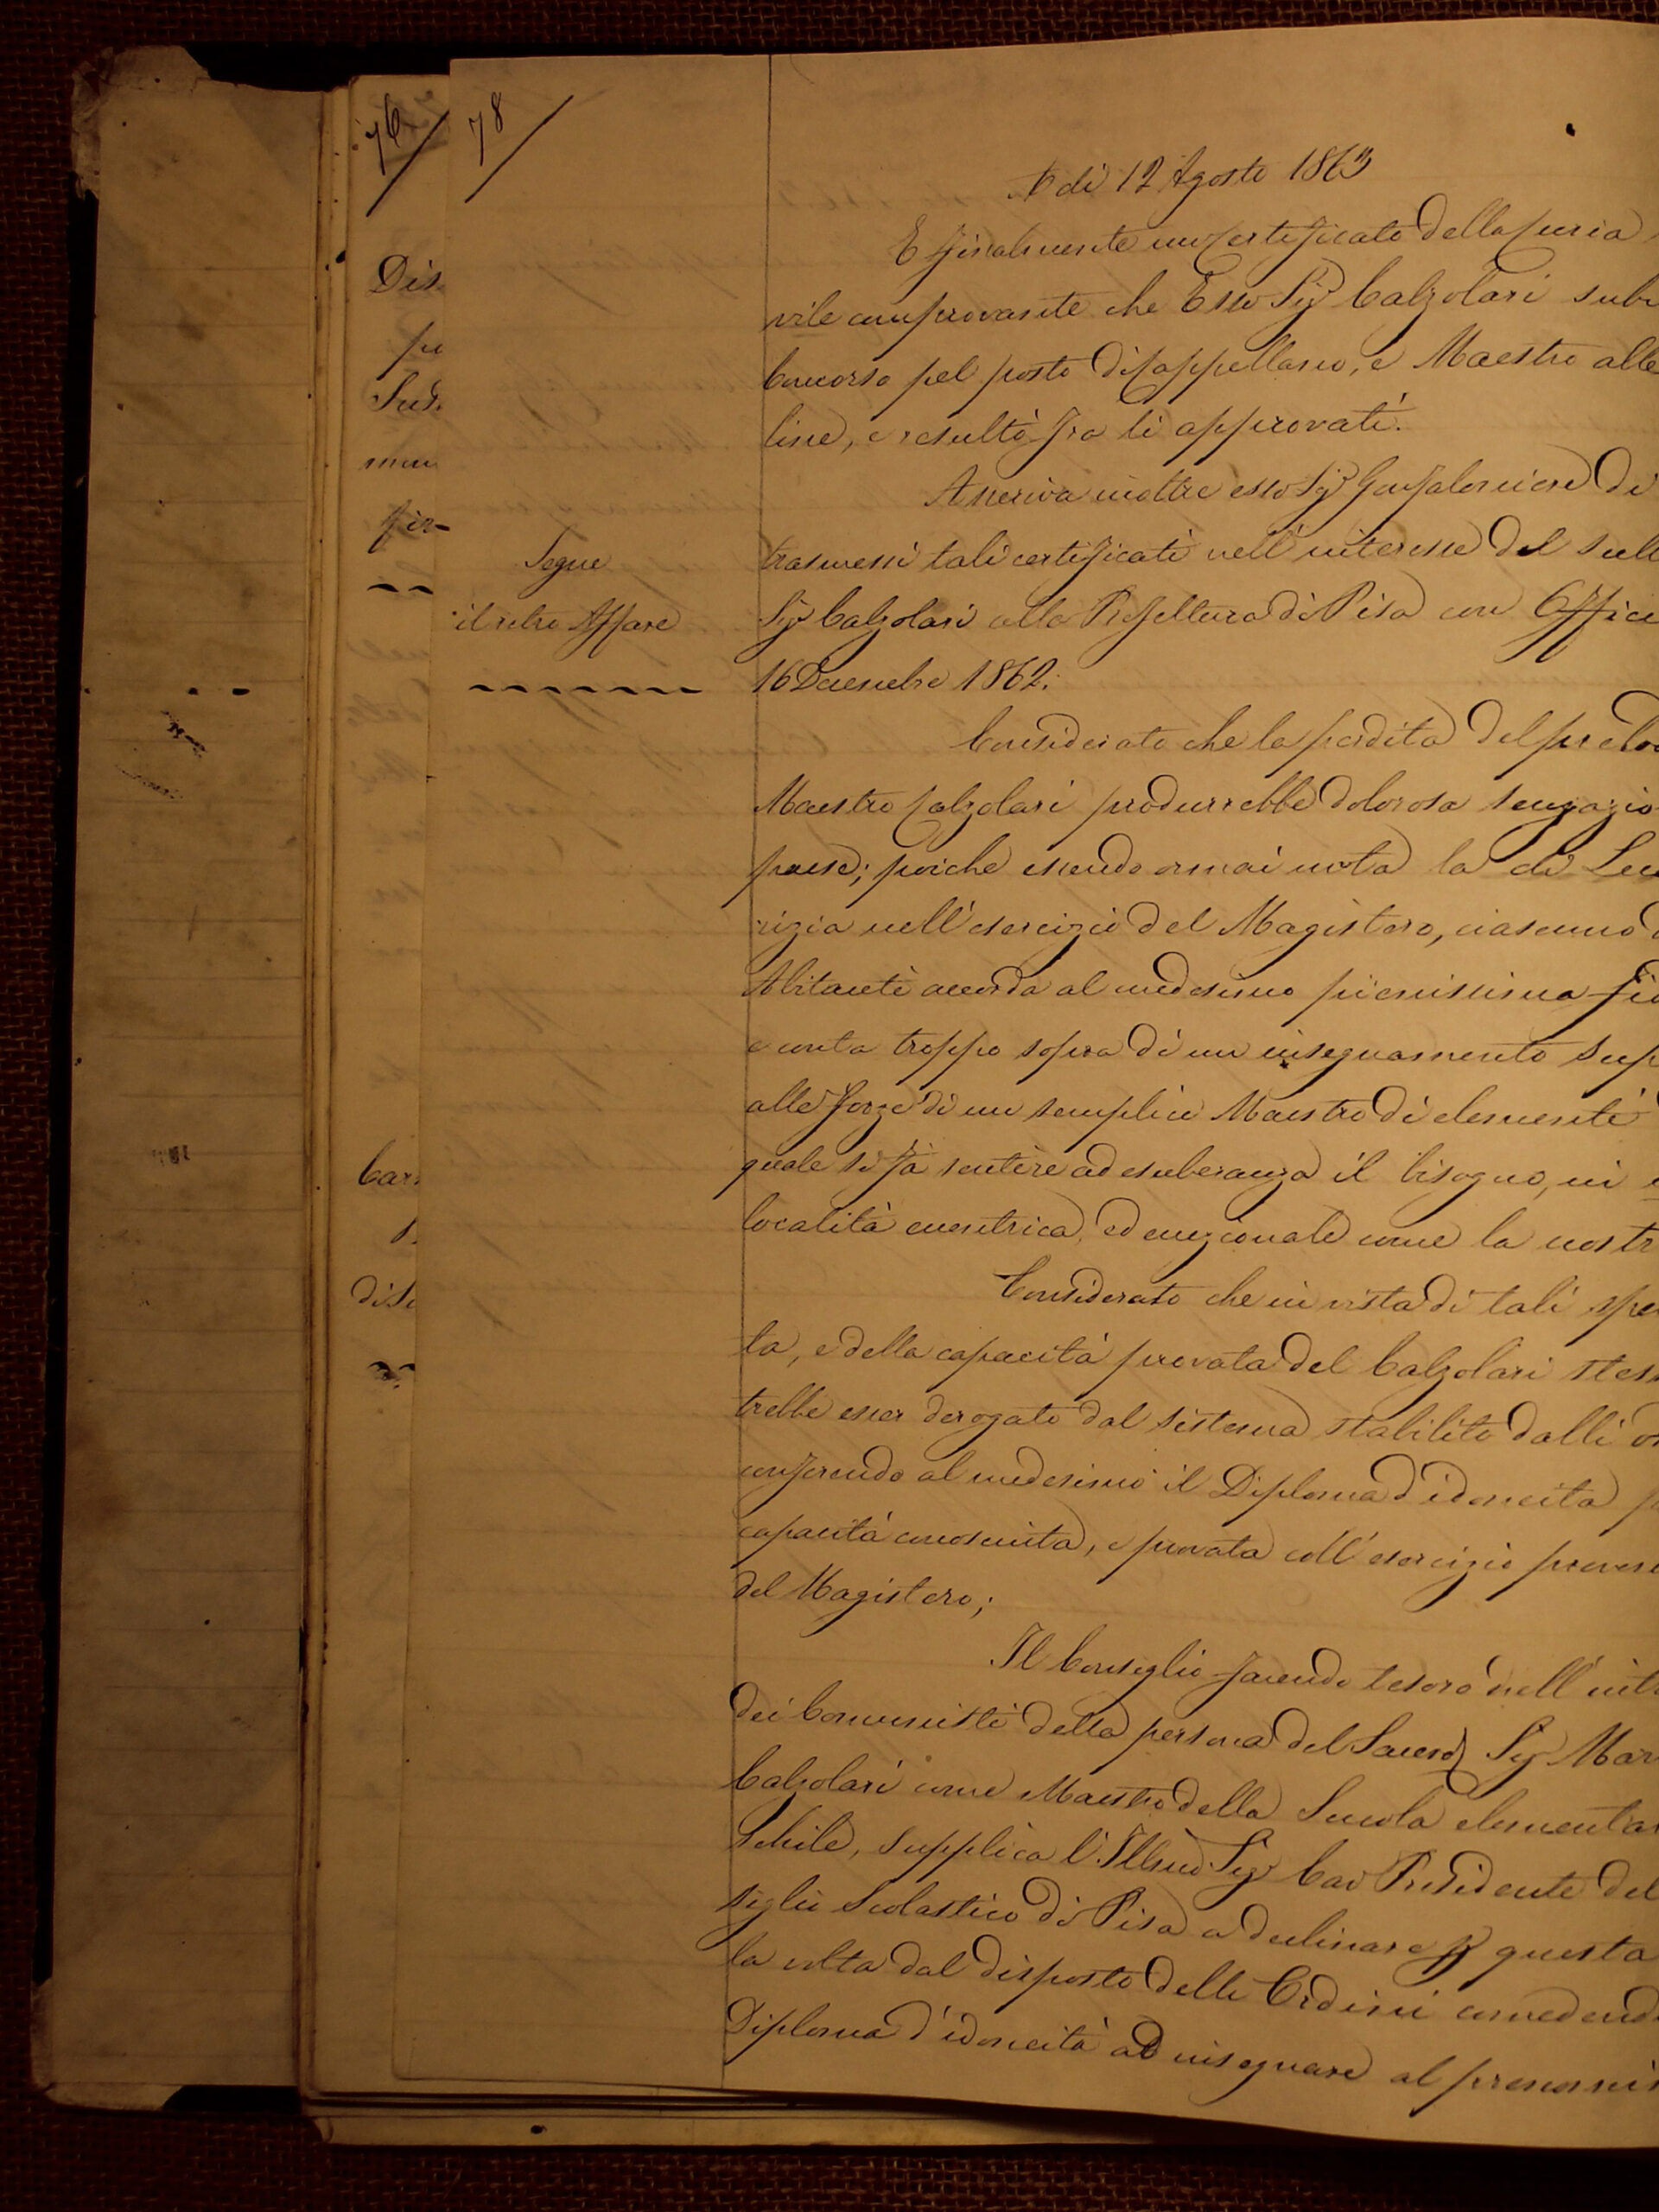 76
78
A di 12 Agosto 1863
E finalmente un Certificato della Curia
vile comprovante che Esso Sig.r Calzolari sub
Concorso pel posto di Cappellano, e Maestro alle
line, e resultò fra li approvati.
Asseriva inoltre esso Sig.r Gonfaloniere di
trasmessi tali certificati nell'interesse del
Sig.r Calzolari alla Prefettura di Pisa con Offici
16 Decembre 1862.
Considerato che la perdita del prelo
Maestro Calzolari produrrebbe dolorosa sengazio
paese; poiche essendo ormai nota la di Lui
rizia nell'esercizio del Magistero, ciascuno
Abitante accorda al medesimo pienissima fid
e conta troppo sopra di un insegnamento sup
alle forze di un semplice Maestro di elementi
quale si fà sentire ad esuberanza il bisogno, in
località eccentrica, ed eccezionale come la nostr
Considerato che in vista di tali spe
ta, e della capacità provata del Calzolari stess
trebbe esser derogato dal sistema stabilito dalli or
conferendo al medesimo il Diploma d'idoneità p
capacità conosciuta, e provata coll'esercizio
del Magistero;
Il Consiglio facendo tesoro nell'inte
dei Comunisti della persona del Sacerd. Sig.r Mar
Calzolari come Maestro della Scuola elementar
schile, supplica l'Illmo Sig.r Cav Presidente del
siglio Scolastico di Pisa a declinare p questa
la volta dal disposto delle Ordini concedend
Diploma d'idoneità ad insegnare al
Segue
il retro Affare
Dis
pu
Sud.
men
fir-
Car
di Si